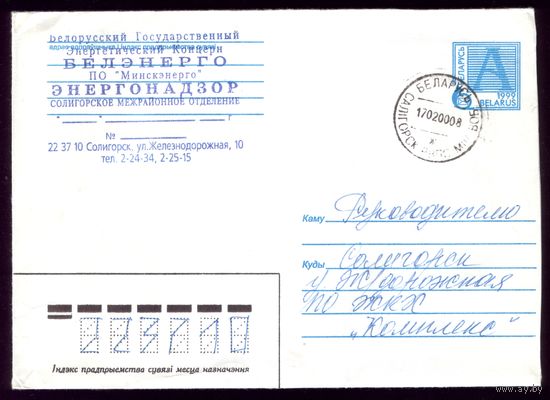 Белорусский Государственный
Энергетический Концерн
БЕЛЭНЕРГО
ПО "Минскэнерго"
ЭНЕРГОНАДЗОР
СОЛИГОРСКОЕ МЕЖРАЙОННОЕ ОТДЕЛЕНИЕ
№
22 37 10 Солигорск, ул.Железнодорожная, 10
тел. 2-24-34, 2-25-15
БЕЛАРУСЬ
А
1999
BELARUS
БЕЛАРУСЬ
САЛІГОРСК
17020008
Каму Руководителю
Куды Солигорск
ул Ж/дорожная
ПО ЖКХ
"Комплекс"
223710
Індэкс прадпрыемства сувязі месца назначэння
www.ay.by